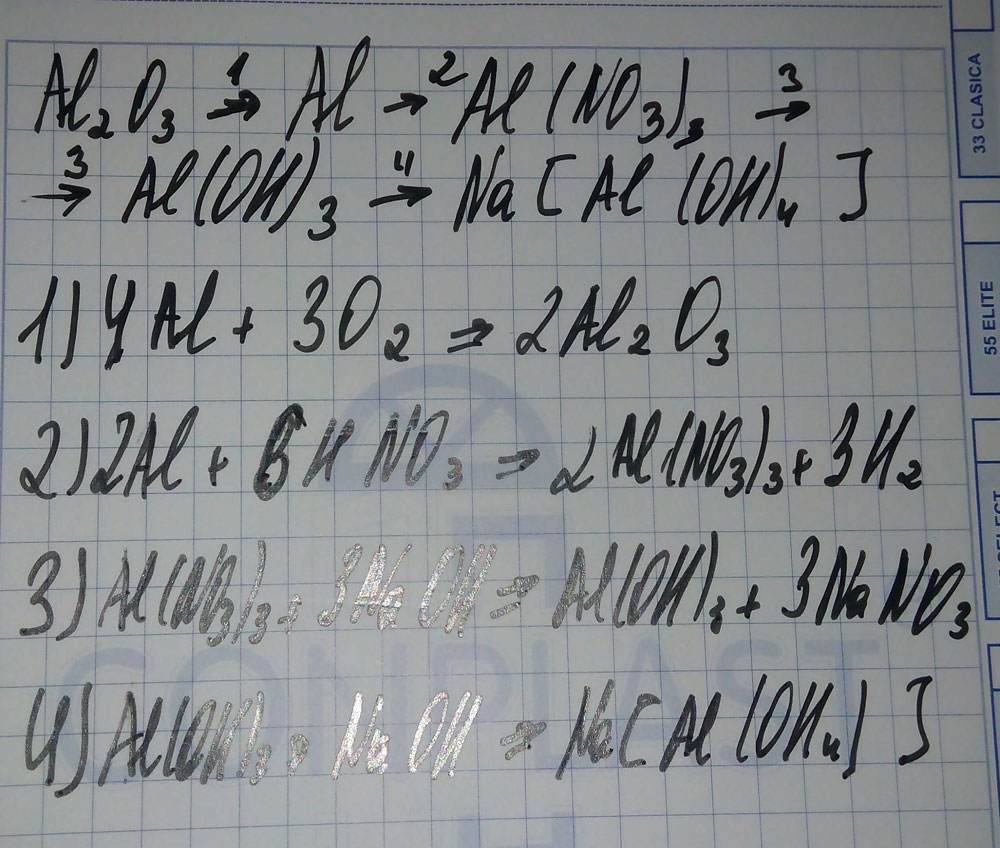 Al₂O₃ →¹ Al →² Al(NO₃)₃ →³
→³ Al(OH)₃ →⁴ Na[Al(OH)₄]
1) 4Al + 3O₂ ⇒ 2Al₂O₃
2) 2Al + 6HNO₃ ⇒ 2Al(NO₃)₃ + 3H₂
3) Al(NO₃)₃ + 3NaOH ⇒ Al(OH)₃ + 3NaNO₃
4) Al(OH)₃ + NaOH ⇒ Na[Al(OH₄)]
33 CLASICA
55 ELITE
CONPLAST